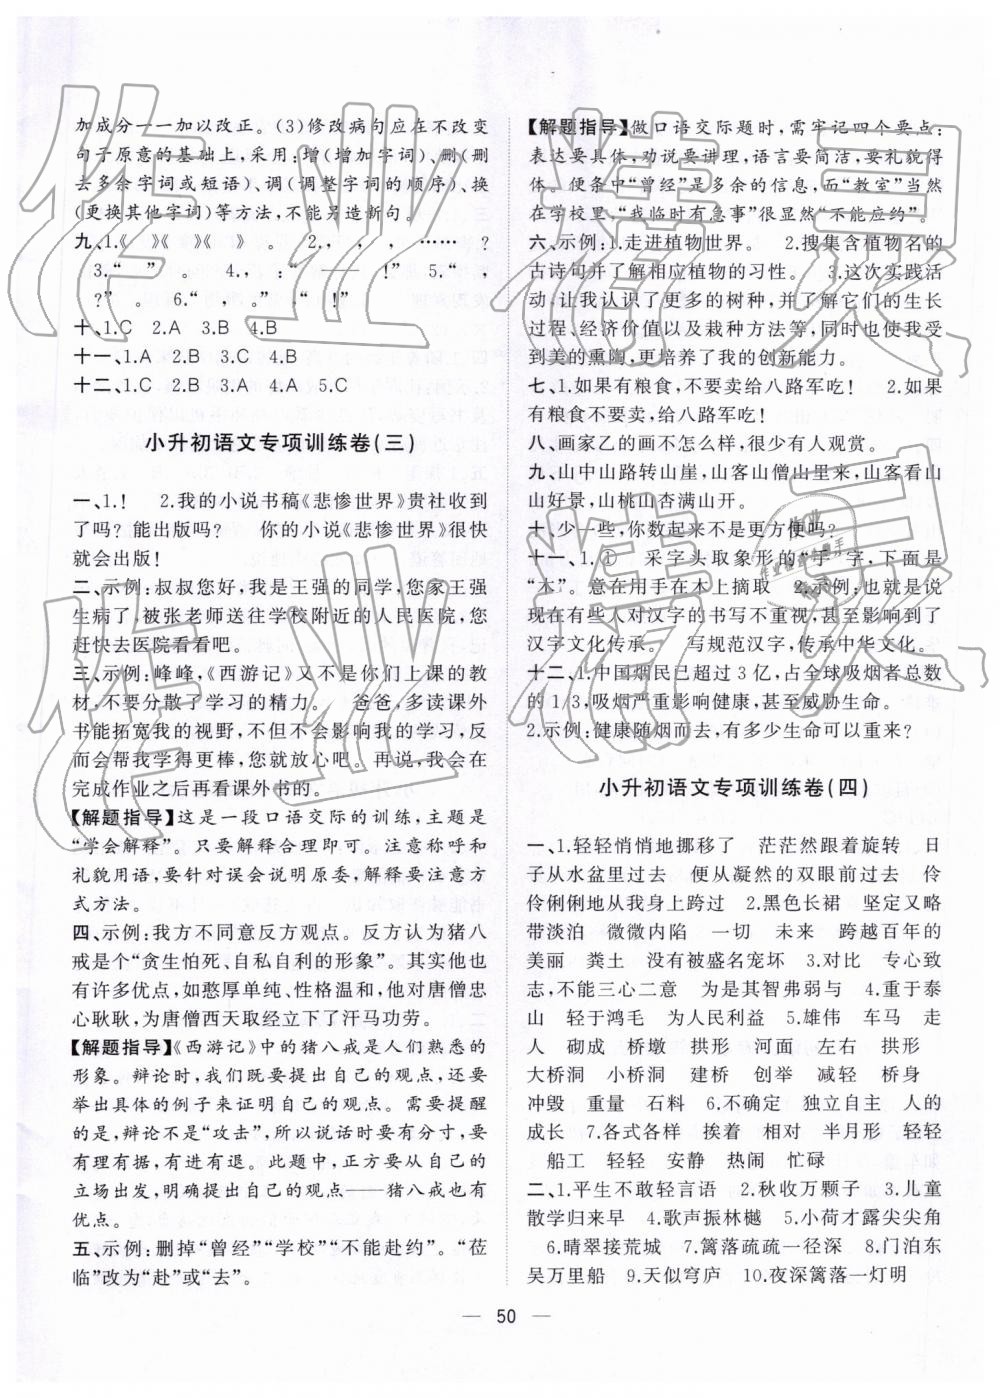 加成分一一加以改正。(3)修改病句应在不改变
句子原意的基础上,采用:增(增加字词)、删(删
去多余字词或短语)、调(调整字词的顺序)、换
(更换其他字词)等方法,不能另造新句。
九、1.《 》《 》《 》。 2., , , …… ?
3.“ ”。 4.,: —— !” 5.“
?”。 6.“ 。”“ !”
十、1.C 2.A 3.B 4.B
十一、1.A 2.B 3.C 4.B
十二、1.C 2.B 3.A 4.A 5.C
小升初语文专项训练卷(三)
一、1.! 2.我的小说书稿《悲惨世界》贵社收到
了吗?能出版吗? 你的小说《悲惨世界》很快
就会出版!
二、示例:叔叔您好,我是王强的同学,您家王强
生病了,被张老师送往学校附近的人民医院,您
赶快去医院看看吧。
三、示例:峰峰,《西游记》又不是你们上课的教
材,不要分散了学习的精力。 爸爸,多读课外
书能拓宽我的视野,不但不会影响我的学习,反
而会帮我学得更棒,您就放心吧。再说,我会在
完成作业之后再看课外书的。
【解题指导】这是一段口语交际的训练,主题是
“学会解释”。只要解释合理即可。注意称呼和
礼貌用语,要针对误会说明原委,解释要注意方
式方法。
四、示例:我方不同意反方观点。反方认为猪八
戒是个“贪生怕死、自私自利的形象”。其实他也
有许多优点,如憨厚单纯、性格温和,他对唐僧忠
心耿耿,为唐僧西天取经立下了汗马功劳。
【解题指导】《西游记》中的猪八戒是人们熟悉的
形象。辩论时,我们要提出自己的观点,还要
举出具体的例子来证明自己的观点。需要提醒
的是,辩论不是“攻击”,所以说话时要有分寸,要
有理有据,有进有退。此题中,正方要从自己的
立场出发,明确提出自己的观点——猪八戒也有
优点。
五、示例:删掉“曾经”“学校”“不能赴约”。“莅
临”改为“赴”或“去”。
【解题指导】做口语交际题时,需牢记四个要点:
表达要具体,劝说要讲理,语言要简洁,要礼貌得
体。便条中“曾经”是多余的信息,而“教室”当然
在学校里,“我临时有急事”很显然“不能应约”。
六、示例:1.走进植物世界。 2.搜集含植物名的
古诗句并了解相应植物的习性。 3.这次实践活
动,让我认识了更多的树种,并了解它们的生长
过程、经济价值以及栽种方法等,同时也使我受
到美的熏陶,更培养了我的创新能力。
七、1.如果有粮食,不要卖给八路军吃! 2.如果
有粮食不要卖,给八路军吃!
八、画家乙的画不怎么样,很少有人观赏。
九、山中山路转山崖,山客山僧山里来,山客看山
山好景,山桃山杏满山开。
十、少一些,你数起来不是更方便吗?
十一、1.① 采字头取象形的“手”字,下面是
“木”。意在用手在木上摘取 2.示例:也就是说
现在有些人对汉字的书写不重视,甚至影响到了
汉字文化传承。 写规范汉字,传承中华文化。
十二、1.中国烟民已超过3亿,占全球吸烟者总数
的1/3,吸烟严重影响健康,甚至威胁生命。
2.示例:健康随烟而去,有多少生命可以重来?
小升初语文专项训练卷(四)
一、1.轻轻悄悄地挪移了 茫茫然跟着旋转 日
子从水盆里过去 便从凝然的双眼前过去 伶
伶俐俐地从我身上跨过 2.黑色长裙 坚定又略
带淡泊 微微内陷 一切 未来 跨越百年的
美丽 粪土 没有被盛名宠坏 3.对比 专心致
志,不能三心二意 为是其智弗弱与 4.重于泰
山 轻于鸿毛 为人民利益 5.雄伟 车马 走
人 砌成 桥墩 拱形 河面 左右 拱形
大桥洞 小桥洞 建桥 创举 减轻 桥身
冲毁 重量 石料 6.不确定 独立自主 人的
成长 7.各式各样 挨着 相对 半月形 轻轻
船工 轻轻 安静 热闹 忙碌
二、1.平生不敢轻言语 2.秋收万颗子 3.儿童
散学归来早 4.歌声振林樾 5.小荷才露尖尖角
6.晴翠接荒城 7.篱落疏疏一径深 8.门泊东
吴万里船 9.天似穹庐 10.夜深篱落一灯明
— 50 —
作业精灵
作业精灵